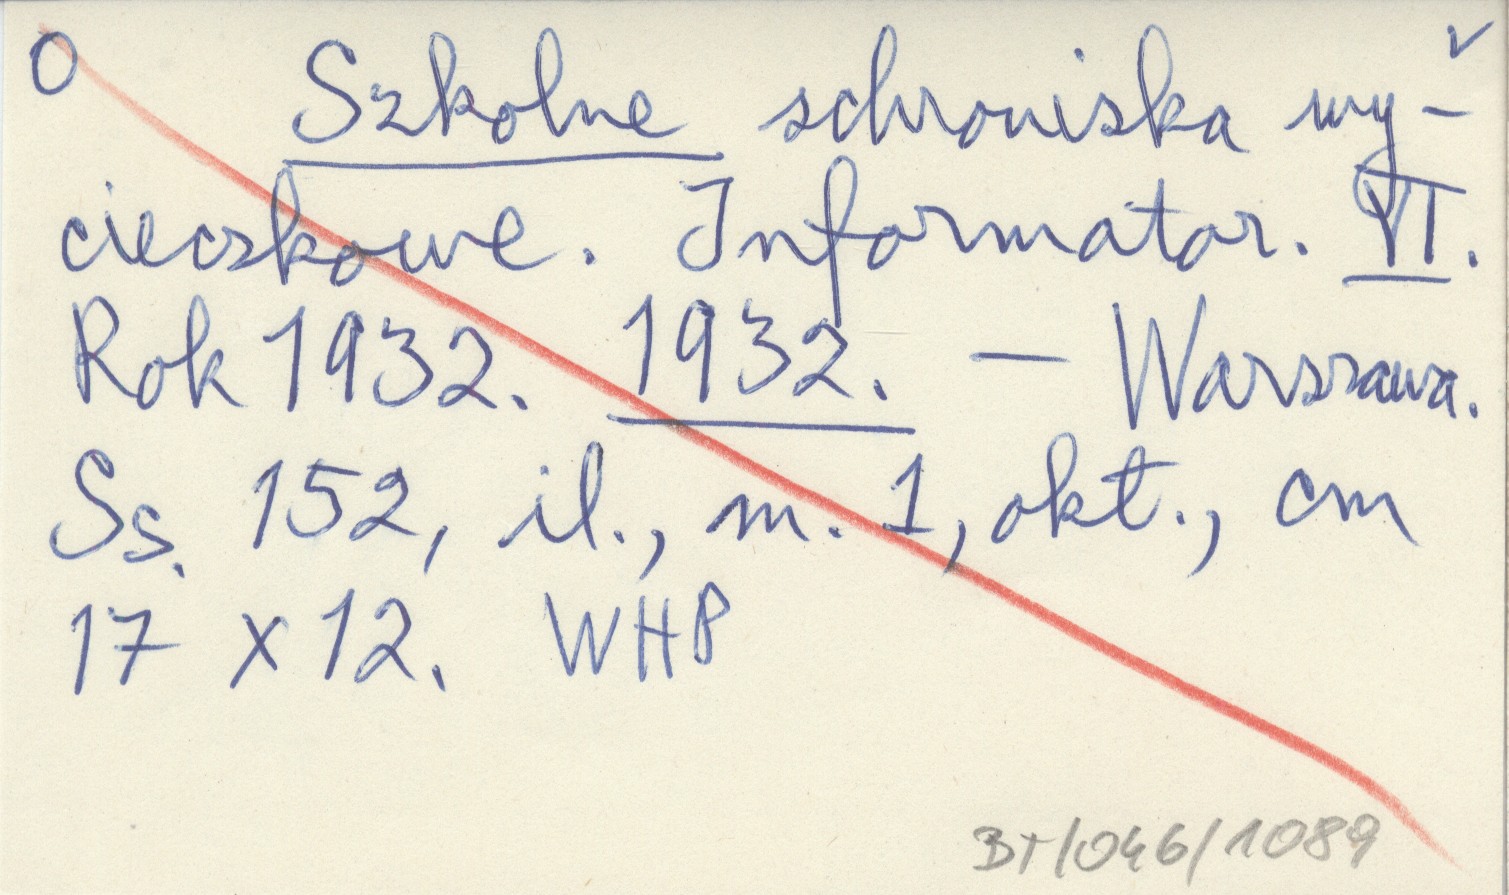 O Szkolne schroniska wy- v
cieczkowe. Informator. VI.
Rok 1932. 1932. — Warszawa.
Ss. 152, il., m. 1, okt., cm
17 x 12. WHP
BT/046/1089